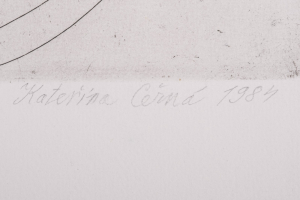 Kateřina Černá 1984